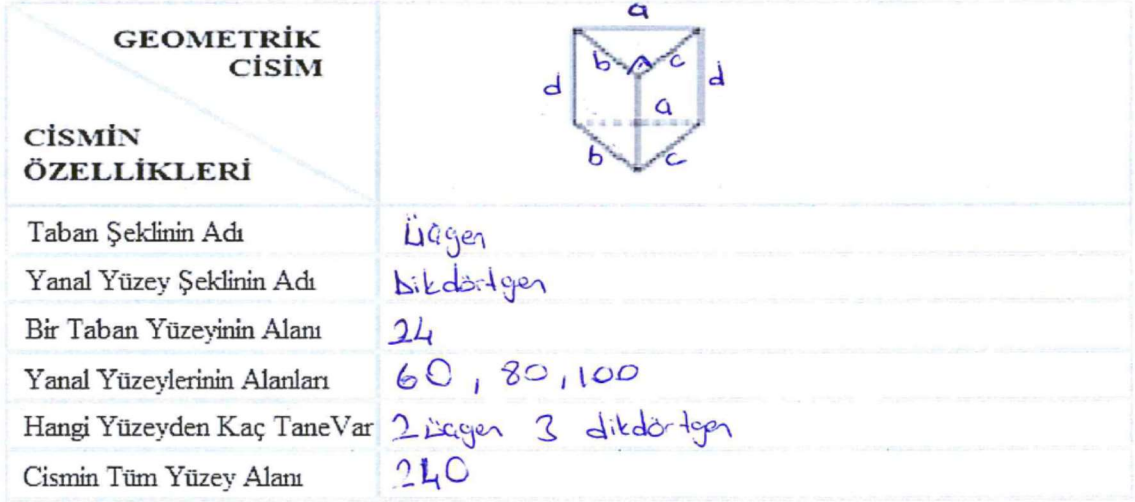 GEOMETRİK
CİSİM
CİSMİN
ÖZELLİKLERİ
a
b c
d d
a
b c
Taban Şeklinin Adı Üçgen
Yanal Yüzey Şeklinin Adı Dikdörtgen
Bir Taban Yüzeyinin Alanı 24
Yanal Yüzeylerinin Alanları 60, 80, 100
Hangi Yüzeyden Kaç TaneVar 2 üçgen 3 dikdörtgen
Cismin Tüm Yüzey Alanı 240